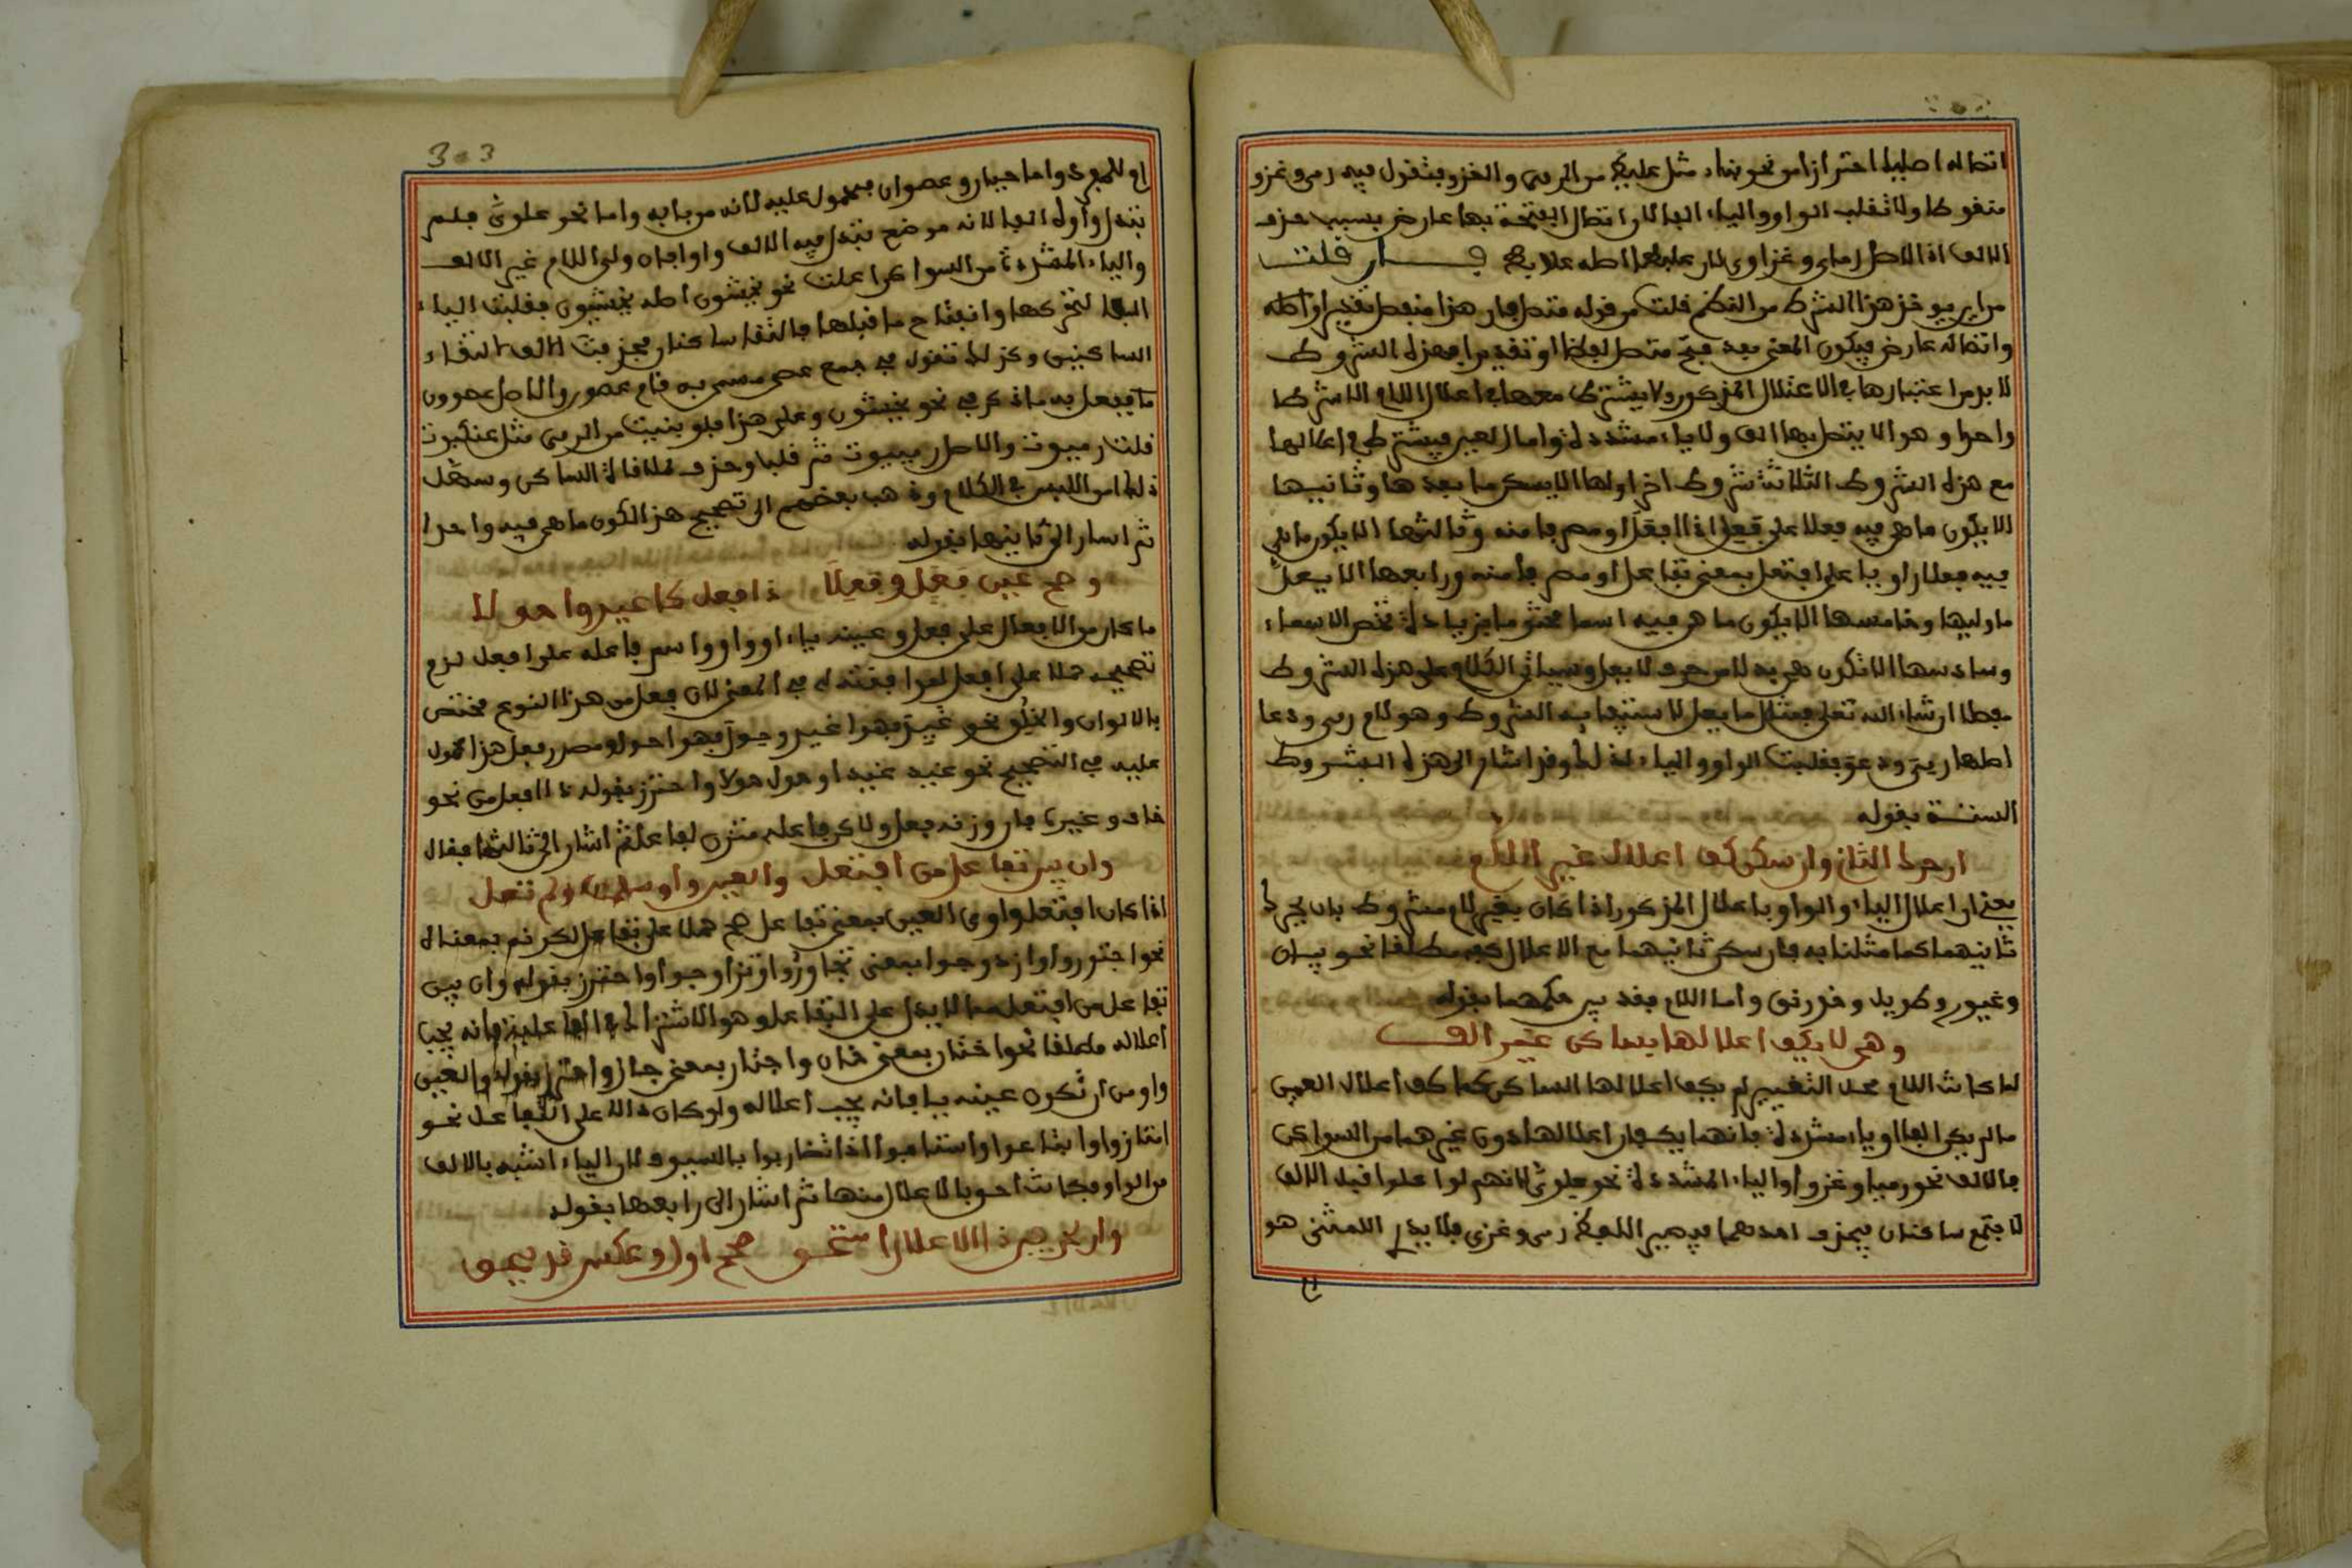 اتصاله اصليا احترازا من نحو بناء مثل علبط من الرمي والغزو فتقول فيه رمي وغزو
منقوصا ولا تقلب الواو والياء الفا لان اتصال الفتحة بها عارض بسبب حذف
الالف اذ الاصل رماي وغزاوي لان علبطا اصله علابط فان قلت
من اين يوخذ هذا الشرط من النظم قلت من قوله متصل فان هذا منفصل تقديرا واصله
واتصاله عارض فيكون المعنى بعد فتح متصل لفظا او تقديرا فهذه الشروط
لا بد من اعتبارها في الاعتلال المذكور ولا يشترط معها في اعلال اللام الا شرط
واحد وهو الا يتصل بها الف ولا ياء مشددة واما العين فيشترط في اعلالها
مع هذه الشروط الثلاثة شروط اخر اولها الا يسكن ما بعدها وثانيها
الا يكون ما هي فيه فعلا على فعل اذا افعل او مصرفا منه وثالثها الا يكون ما هي
فيه فعلا واويا على افتعل بمعنى تفاعل او مصرفا منه ورابعها الا يعل
ما وليها وخامسها الا يكون ما هي فيه اسما مختوما بزيادة تخص الاسماء
وسادسها الا تكون هي بدلا من حرف لا يعل وسياتي الكلام على هذه الشروط
مفصلا ان شاء الله تعلى فمثال ما يعل لاستيفائه الشروط وهو لام رمى ودعا
اصلها رمي ودعو فقلبت الواو والياء لذلك وقد اشار الى هذه الشروط
الستة بقوله
ان حرك الثاني وان سكن كف اعلال غير اللام
يعني ان اعلال الياء والواو باعلال المذكور اذا كان بغير لام مشروط بان يحرك
ثانيهما كما مثلنا به فان سكن ثانيهما مع الاعلال كف مطلقا نحو بيان
وغيور وطويل وخورنق واما اللام فقد بين حكمهما بقوله
وهي لا يكف اعلالها بساكن غير الف
لما كانت اللام محل التغيير لم يكف اعلالها الساكن كما كف اعلال العين
ما لم يكن الفا او ياء مشددة فانهما يكفان اعلالها دون غيرهما من السواكن
فالالف نحو رميا وغزوا والياء المشددة نحو علوي لانهم لو اعلوا قبل الالف
لاجتمع ساكنان فيحذف احدهما فيصير اللفظ رمى وغزى فلا يدرى اللمثنى هو
ام للمفرد واما حييان وعصوان فمحمول عليه لانه من بابه واما نحو علوي فلم
تبدل واوه الفا لانه موضع تبدل فيه الالف واوا وان ولي اللام غير الالف
والياء المشددة من السواكن اعلت نحو يخشون اصله يخشيون فقلبت الياء
الفا لتحركها وانفتاح ما قبلها فالتقا ساكنان فحذفت الالف لالتقاء
الساكنين وكذلك تقول في جمع عصى مسمى به قام عصون والاصل عصوون
ففعل به ما ذكر في نحو يخشون وعلى هذا فلو بنيت من الرمي مثل عنكبوت
قلت رميوت والاصل رمييوت ثم قلبا وحذف لملاقاة الساكن وسهل
ذلك امن اللبس في الكلام وذهب بعضهم الى تصحيح هذا لكون ما هي فيه واحدا
ثم اشار الى ثانيها بقوله
وصح عين فعل وفعلا ذا افعل كاغيد واحولا
ما كان من الافعال على فعل وعينه ياء او واو واسم فاعله على افعل لزم
تصحيحه حملا على افعل لموافقته له في المعنى لان فعل من هذا النوع مختص
بالالوان والخلق نحو غيد فهو اغيد وحول فهو احول ومصدر فعل هذا محمول
عليه في التصحيح نحو غيد غيدا وحول حولا واحترز بقوله ذا افعل من نحو
خاف وغيره فان وزنه فعل ولكن فاعله متزن بفاعل ثم اشار الى ثالثها فقال
وان يبن تفاعل من افتعل والعين واو سلمت ولم تعل
اذا كان افتعل واوي العين بمعنى تفاعل صح حملا على تفاعل لكونه بمعناه
نحو اجتوروا وازدوجوا بمعنى تجاوروا وتزاوجوا واحترز بقوله وان يبن
تفاعل من افتعل مما لا يدل على التفاعل وهو الاشتراك في الفاعلية فانه يجب
اعلاله مطلقا نحو اختان بمعنى خان واجتاز بمعنى جاز واحترز بقوله والعين
واو من ان تكون عينه ياء فانه يجب اعلاله ولو كان دالا على التفاعل نحو
امتازوا وابتاعوا واستافوا اذا تضاربوا بالسيوف لان الياء اشبه بالالف
من الواو فكانت احق بالاعلال منها ثم اشار الى رابعها بقوله
وان لحرفين ذا الاعلال استحق صحح اول وعكس قد يحق